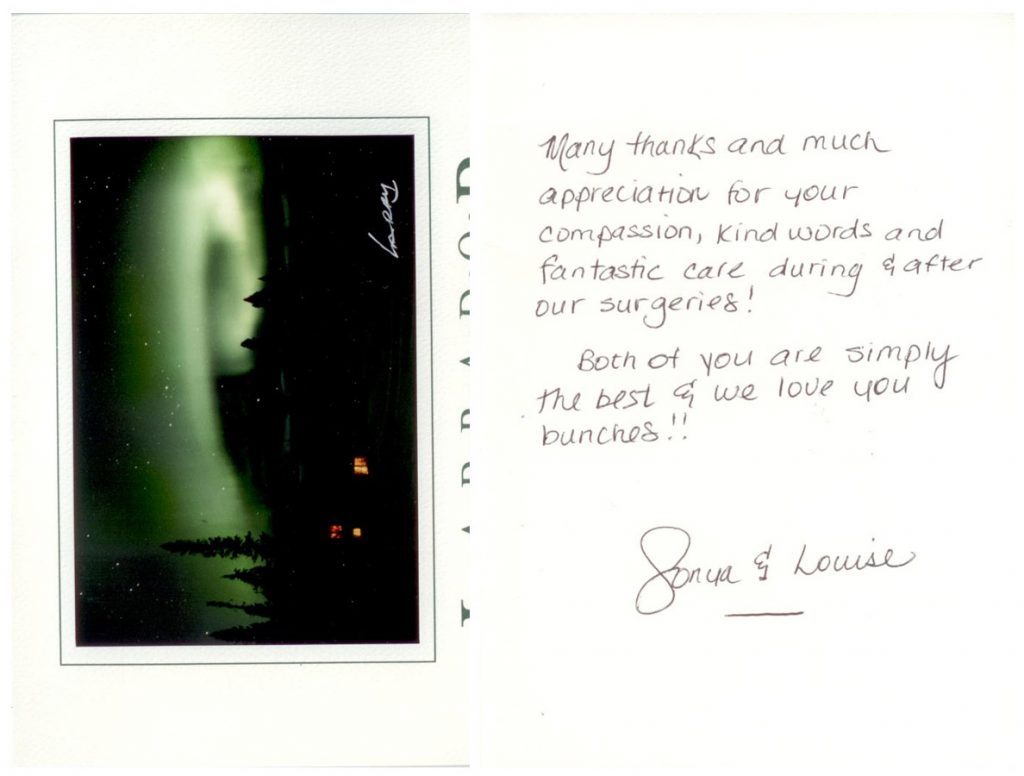 LABRADOR
Many thanks and much
appreciation for your
compassion, kind words and
fantastic care during & after
our surgeries!
Both of you are simply
the best & we love you
bunches!!
Sonya & Louise